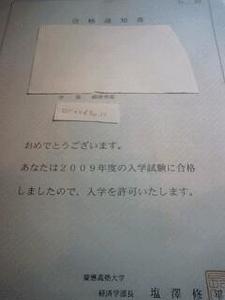 合格通知書
おめでとうございます。
あなたは2009年度の入学試験に合格
しましたので、入学を許可いたします。
慶應義塾大学
経済学部長 塩澤修平